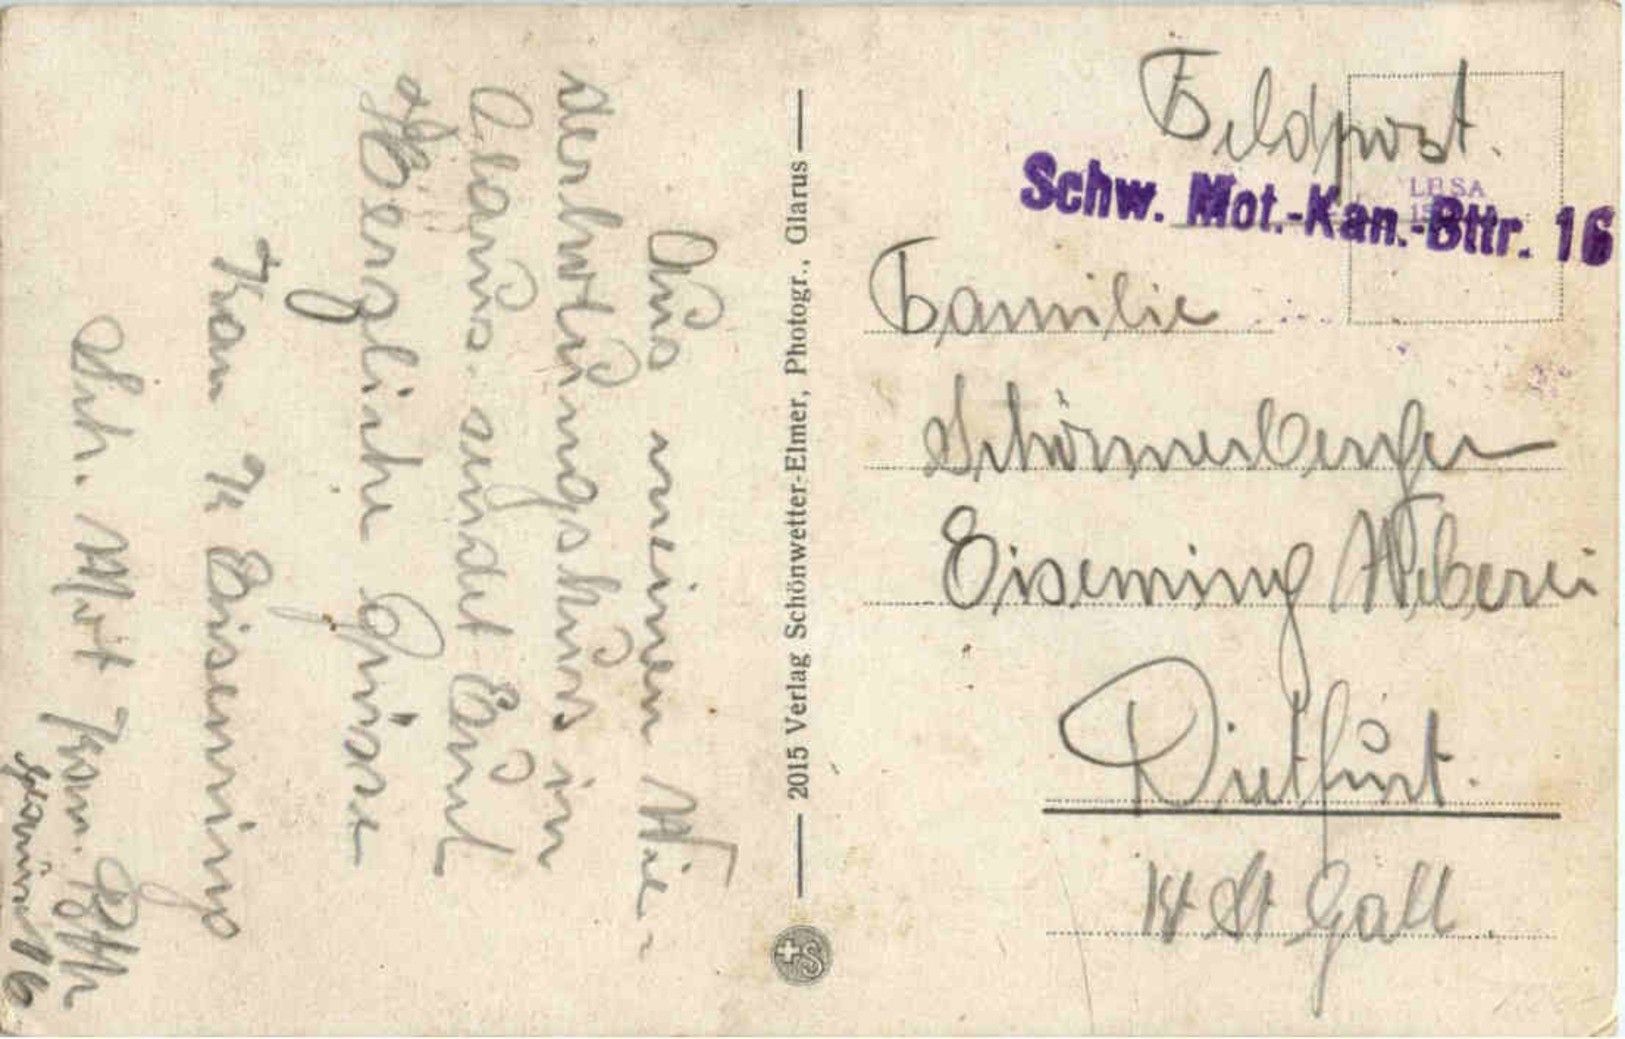 Aus meinem Wie-
derholungskurs in
Glarus. sendet Euch
Herzliche Grüsse
Kan K Eisenring
Sch. Mot Kan. Bttr
16
2015 Verlag Schönwetter-Elmer, Photogr., Glarus
Feldpost.
Schw. Mot.-Kan.-Bttr. 16
Familie
Schönenberger
Eisenring Weberei
Dietfurt.
Kt St Gall